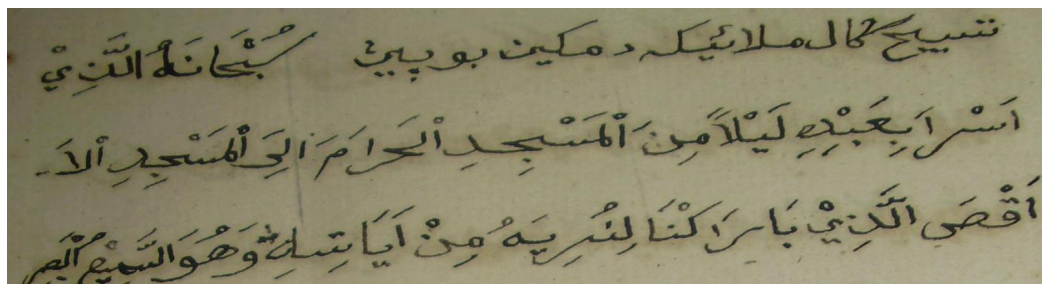 تسبيح كمال ملائيكه دمكين بوييئ سُبْحَانَهُ الَّذِيْ
اَسْرَا بِعَبْدِهِ لَيْلاً مِنَ الْمَسْجِدِ الْحَرَامَ اِلَى الْمَسْجِدِ الْاَ
اَقْصَى الَّذِيْ بَارَاكْنَا لِنُرِيَهُ مِنْ اَيَاتِهِ وَهُوَ السَّمِيْعُ الْبَصِر